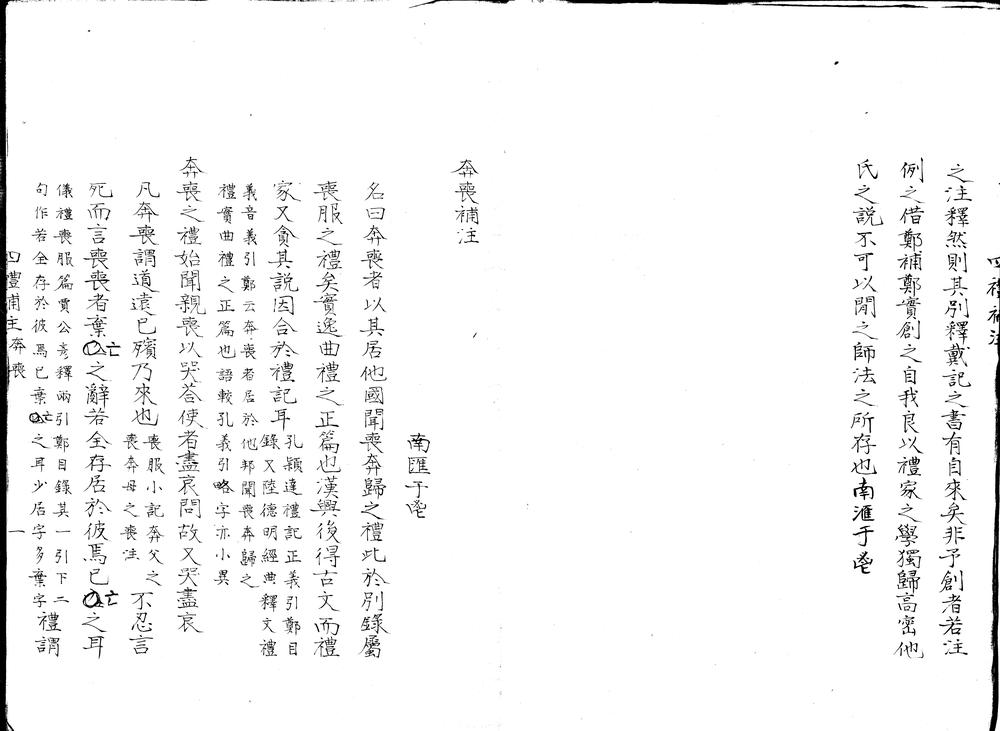 四禮補注
之注釋然則其別釋戴記之書有自來矣非予創者若注
例之借鄭補鄭實創之自我良以禮家之學獨歸高密他
氏之說不可以閒之師法之所存也南滙于鬯
奔喪補注
南匯于鬯
名曰奔喪者以其居他國聞喪奔歸之禮此於別錄屬
喪服之禮矣實逸曲禮之正篇也漢興後得古文而禮
家又貪其說因合於禮記耳孔穎達禮記正義引鄭目
錄又陸德明經典釋文禮
義音義引鄭云奔喪者居於他邦聞喪奔歸之
禮實曲禮之正篇也語較孔義引略字亦小異
奔喪之禮始聞親喪以哭答使者盡哀問故又哭盡哀
凡奔喪謂道遠已殯乃來也喪服小記奔父之
喪奔母之喪注不忍言
死而言喪喪者棄亡之辭若全存居於彼焉已亡之耳
儀禮喪服篇賈公彥釋兩引鄭目錄其一引下二
句作若全存於彼焉已棄亡之耳少居字多棄字禮謂
四禮補注奔喪 一